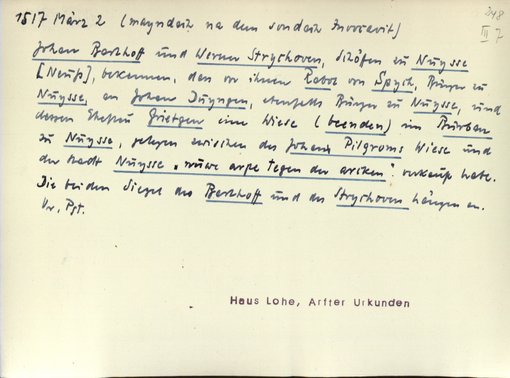 1517 März 2 (mayndach na dem sondach Invocavit)
248
III 7
Johan Barkhoff und Werner Struchoven, Schöfen zu Nuysse
[Neuß], bekennen, dass vor ihnen Rabot von Spych, Bürger zu
Nuysse, an Johan Duyngen, ebenfalls Bürger zu Nuysse, und
dessen Ehefrau Grietgen eine Wiese (beenden) im Burban
zu Nuysse, gelegen zwischen des Johann Pilgrams Wiese und
der Stadt Nuysse „nuwe arpe tegen der arcken" verkauft habe.
Die beiden Siegel des Barkhoff und des Struchoven hängen an.
Or., Pgt.
Haus Lohe, Arfter Urkunden